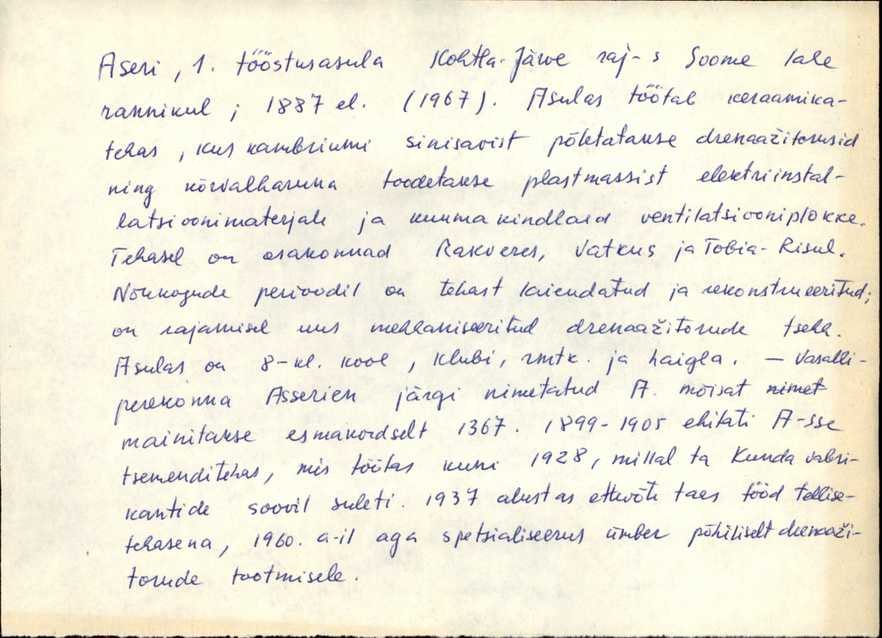 Aseri, 1. tööstusasula Kohtla-Järve raj-s Soome lahe
rannikul; 1887 el. (1967). Asulas töötab keraamika-
tehas, kus kambriumi sinisavist põletatakse drenaažitorusid
ning kõrvalharuna toodetakse plastmassist elektriinstal-
latsioonimaterjale ja kuumakindlaid ventilatsiooniplokke.
Tehasel on osakonnad Rakveres, Vatkus ja Tobia-Risul.
Nõukogude perioodil on tehast laiendatud ja rekonstrueeritud;
on rajamisel uus mehhaniseeritud drenaažitorude tsehh.
Asulas on 8-kl. kool, klubi, rmtk. ja haigla. — Vasalli-
perekonna Asserien järgi nimetatud A. mõisat nimet
mainitakse esmakordselt 1367. 1899-1905 ehitati A-sse
tsemenditehas, mis töötas kuni 1928, millal ta Kunda vabri-
kantide soovil suleti. 1937 alustas ettevõte taas tööd tellise-
tehasena, 1960. a-il aga spetsialiseerus ümber põhiliselt drenaaži-
torude tootmisele.